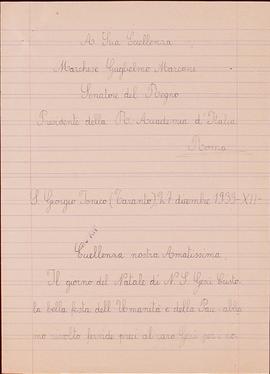 A Sua Eccellenza
Marchese Guglielmo Marconi
Senatore del Regno
Presidente della R. Accademia d'Italia
Roma
S. Giorgio Ionico (Taranto) 27 dicembre 1933-XII-
Eccellenza nostra Amatissima,
Il giorno del Natale di N. S. Gesù Cristo
la bella festa dell'Umanità e della Pace abbia-
mo rivolto fervide preci al caro Gesù per